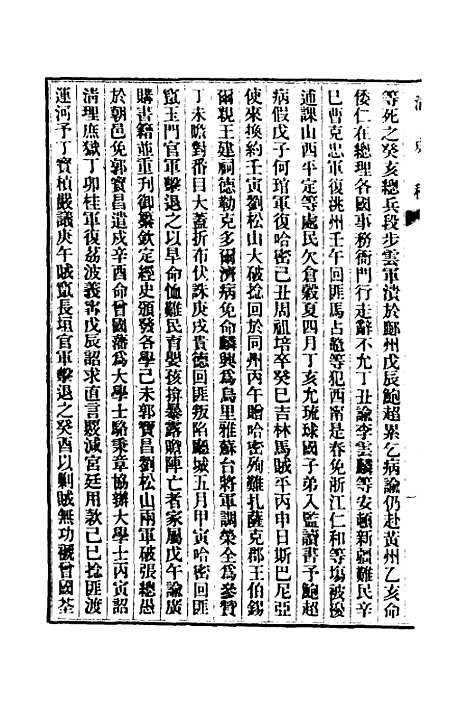 等死之癸亥總兵段步雲軍潰於鄜州戊辰鮑超累乞病諭仍赴黃州乙亥命
倭仁在總理各國事務衙門行走辭不允丁丑諭李雲麟等安頓新疆難民辛
巳曹克忠軍復洮州壬午回匪馬占鼇等犯西甯是春免浙江仁和等場被擾
逋課山西平定等處民欠倉穀夏四月丁亥允琉球國子弟入監讀書予鮑超
病假戊子何琯軍復哈密己丑周祖培卒癸巳吉林馬賊平丙申日斯巴尼亞
使來換約壬寅劉松山大破捻回於同州丙午贈哈密殉難扎薩克郡王伯錫
爾親王建祠德勒克多爾濟病免命麟興為烏里雅蘇台將軍調榮全為參贊
丁未瞻對番目大蓋折布伏誅庚戌貴德回匪叛陷廳城五月甲寅哈密回匪
竄玉門官軍擊退之以旱命恤難民育嬰孩掩暴露瞻陣亡者家屬戊午諭廣
購書籍並重刊御纂欽定經史頒發各學己未郭寶昌劉松山兩軍破張總愚
於朝邑免郭寶昌遣戍辛酉命曾國藩為大學士駱秉章協辦大學士丙寅詔
清理庶獄丁卯桂軍復荔波義甯戊辰詔求直言覈減宮廷用款己巳捻匪渡
運河予丁寶楨嚴議庚午賊竄長垣官軍擊退之癸酉以剿賊無功褫曾國荃